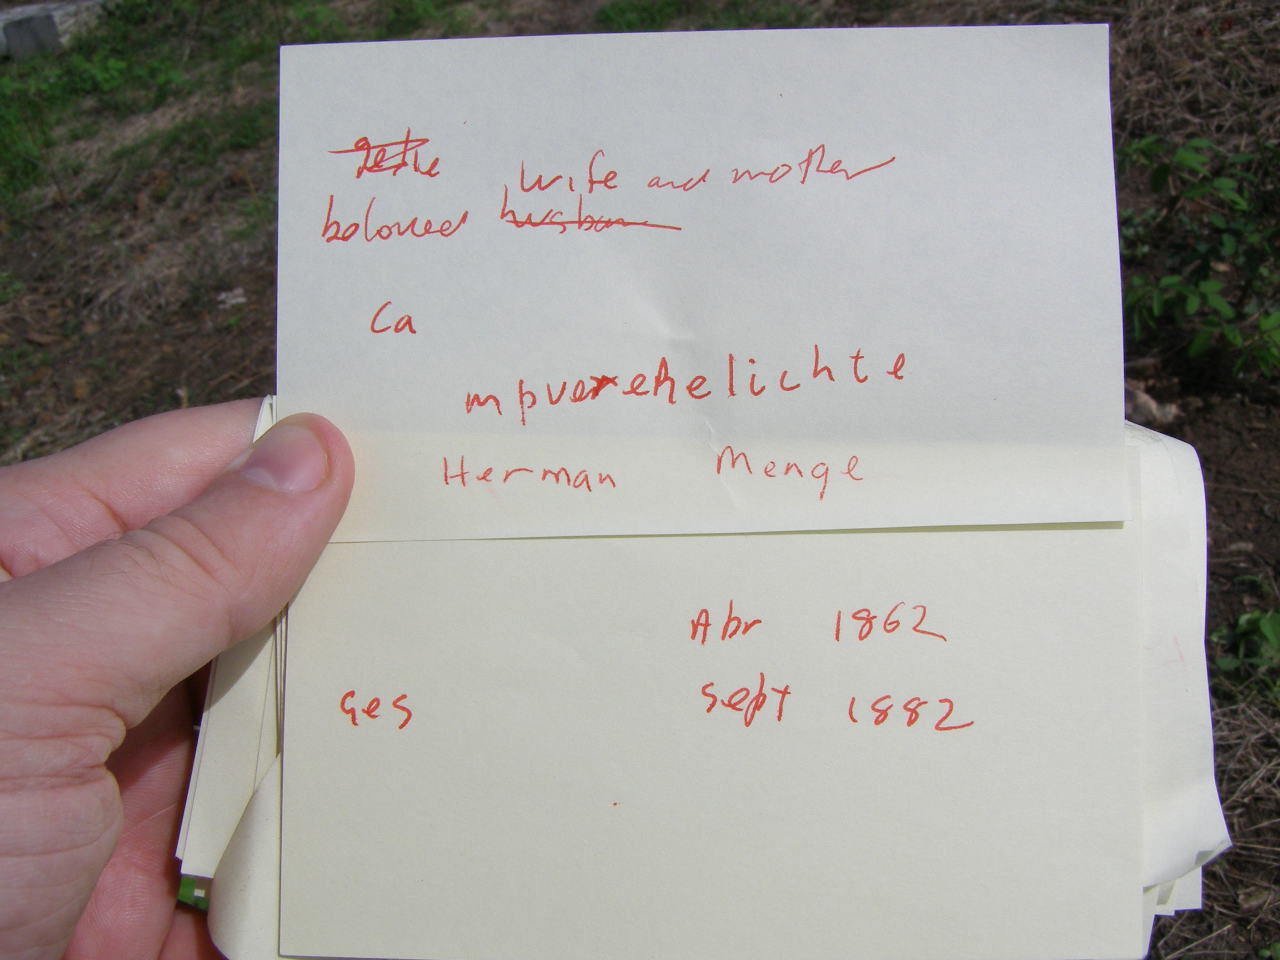 wife and mother
beloved husban
Ca
mpverehelichte
Herman Menge
Abr 1862
Ges Sept 1882